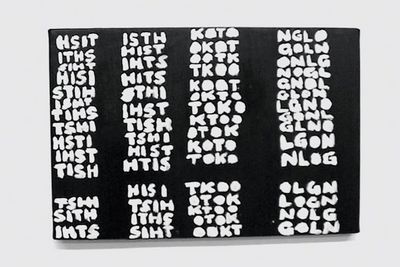 HSIT
ITHS
SIHT
HISI
STIH
TSHI
TIHS
TSHI
HSTI
IHST
TISH
TSHI
SITH
IHTS
ISTH
HIST
IHTS
HITS
STHI
IHST
TISH
TSHI
HIST
HTIS
HISI
TSIH
ITHS
SIHT
KOTO
OKOT
OOTK
TKOO
OOKT
TOKO
KTOO
OTOK
KOTO
TOKO
TKOO
KTOO
OTOK
OOKT
NGLO
GOLN
ONLG
NOGL
LGNO
LGON
NLOG
OLGN
LOGN
NOLG
GOLN